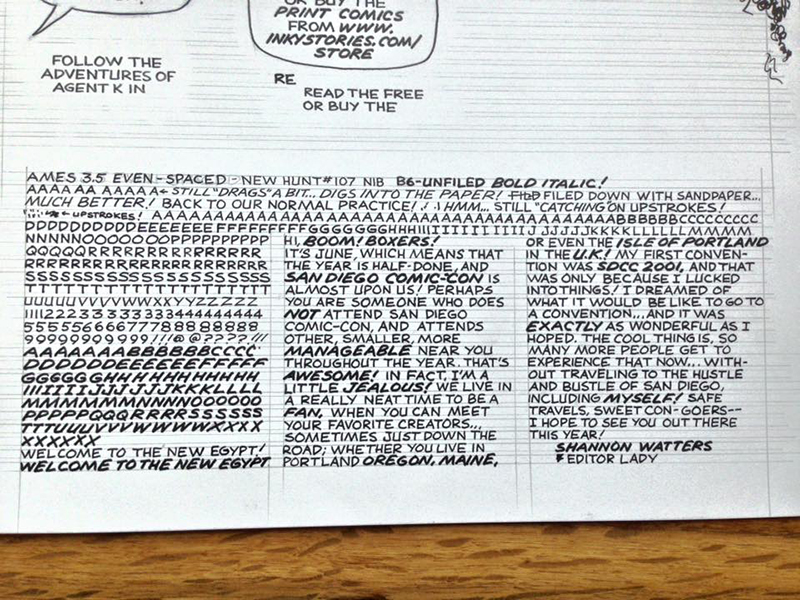 OR BUY THE
PRINT COMICS
FROM WWW.
INKYSTORIES.COM/
STORE
FOLLOW THE
ADVENTURES OF
AGENT K IN
RE
READ THE FREE
OR BUY THE
AMES 3.5 EVEN-SPACED - NEW HUNT #107 NIB B6-UNFILED BOLD ITALIC!
AAAAAA AA AAAAA← STILL "DRAGS" A BIT... DIGS INTO THE PAPER! FILED DOWN WITH SANDPAPER...
MUCH BETTER! BACK TO OUR NORMAL PRACTICE! HMM... STILL "CATCHING" ON UPSTROKES!
← UPSTROKES! AAAAAAAAAAAAAAAAAAAAAAAAAAAAAAAAAAAAAAAAAABBBBBBCCCCCCCCC
DDDDDDDDDDEEEEEEEFFFFFFFFGGGGGGGHHHIIIIIIIIIIIIIJJJJJJJKKKKLLLLLLMMMMM
NNNNNOOOOOOOOPPPPPPPPPP
QQQQRRRRRRRRRRRRRRRR
RRRRRRRRRRRRRRRRRRRR
SSSSSSSSSSSSSSSSSSSSSS
TTTTTTTTTTTTTTTTTTTTTT
UUUUUVVVVWWXXYYZZZZZ
1111222333333344444444444
5555566666777788888888
9999999999!!!@@????.!!!
AAAAAAAABBBBBBCCCC
DDDDDDDEEEEEEFFFFFF
GGGGGGHHHHHHHHHH
IIIIIIIIJJJJJJJKKKLLLL
MMMMMMMNNNNOOOOOO
PPPPPPQQQRRRRSSSSSS
TTTUUUVVVWWWWXXXX
XXXXXXX
WELCOME TO THE NEW EGYPT!
WELCOME TO THE NEW EGYPT
HI, BOOM! BOXERS!
IT'S JUNE, WHICH MEANS THAT
THE YEAR IS HALF-DONE, AND
SAN DIEGO COMIC-CON IS
ALMOST UPON US! PERHAPS
YOU ARE SOMEONE WHO DOES
NOT ATTEND SAN DIEGO
COMIC-CON, AND ATTENDS
OTHER, SMALLER, MORE
MANAGEABLE NEAR YOU
THROUGHOUT THE YEAR. THAT'S
AWESOME! IN FACT, I'M A
LITTLE JEALOUS! WE LIVE IN
A REALLY NEAT TIME TO BE A
FAN, WHEN YOU CAN MEET
YOUR FAVORITE CREATORS...
SOMETIMES JUST DOWN THE
ROAD; WHETHER YOU LIVE IN
PORTLAND OREGON, MAINE,
OR EVEN THE ISLE OF PORTLAND
IN THE U.K.! MY FIRST CONVEN-
TION WAS SDCC 2001, AND THAT
WAS ONLY BECAUSE I LUCKED
INTO THINGS! I DREAMED OF
WHAT IT WOULD BE LIKE TO GO TO
A CONVENTION... AND IT WAS
EXACTLY AS WONDERFUL AS I
HOPED. THE COOL THING IS, SO
MANY MORE PEOPLE GET TO
EXPERIENCE THAT NOW... WITH-
OUT TRAVELING TO THE HUSTLE
AND BUSTLE OF SAN DIEGO,
INCLUDING MYSELF! SAFE
TRAVELS, SWEET CON-GOERS--
I HOPE TO SEE YOU OUT THERE
THIS YEAR!
SHANNON WATTERS
EDITOR LADY